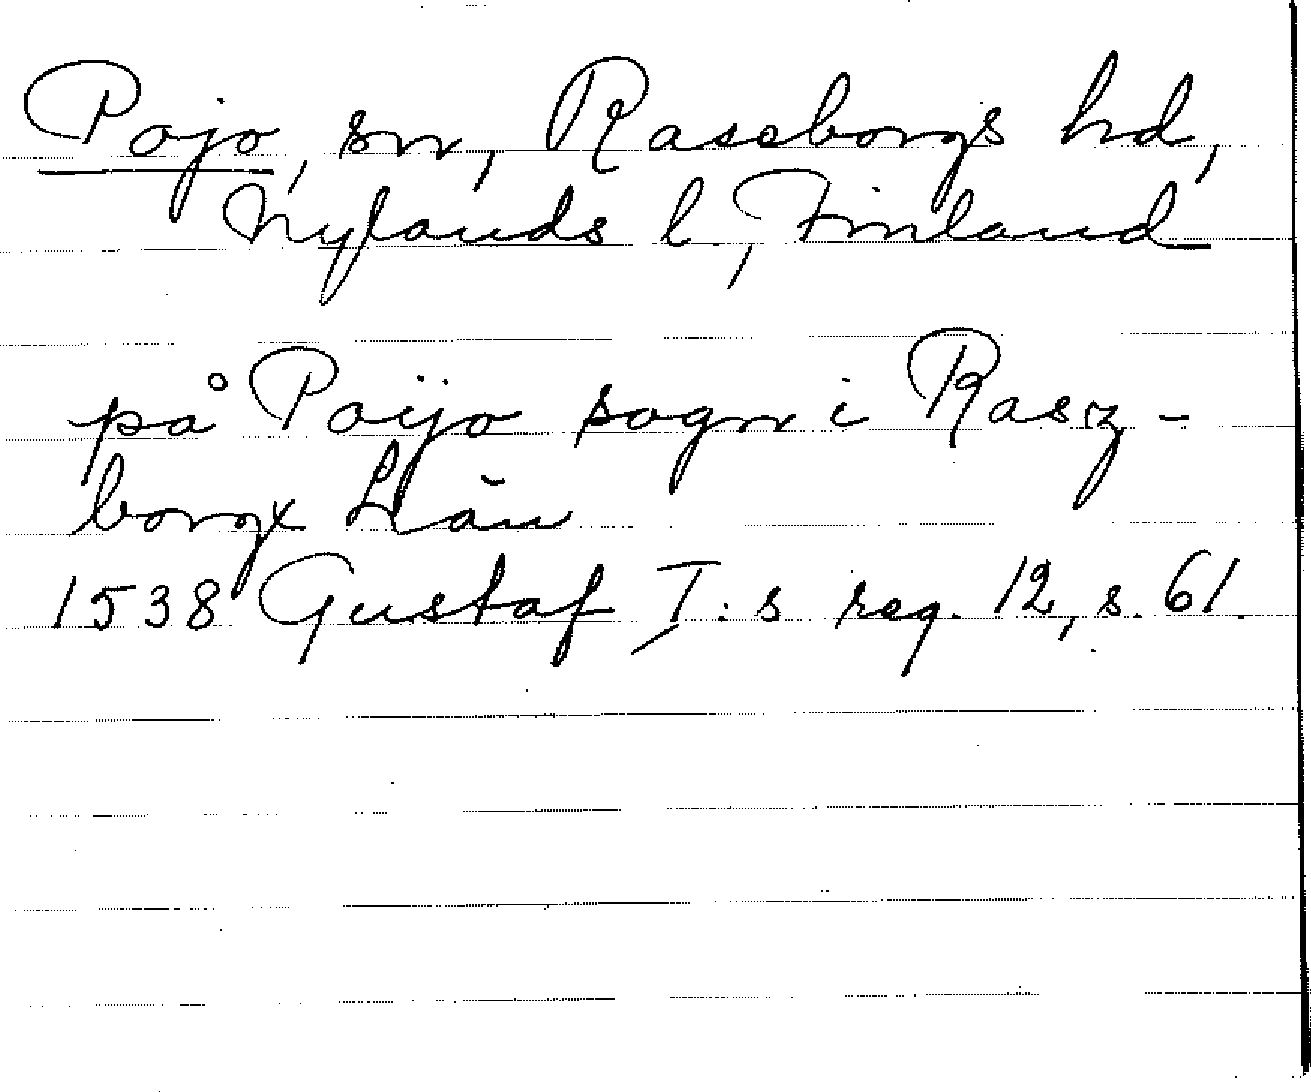 Pojo, sn, Raseborgs hd,
Nylands l., Finland
på Poijo sogn i Rasz-
borgx Län
1538 Gustaf I:s reg. 12, s. 61.